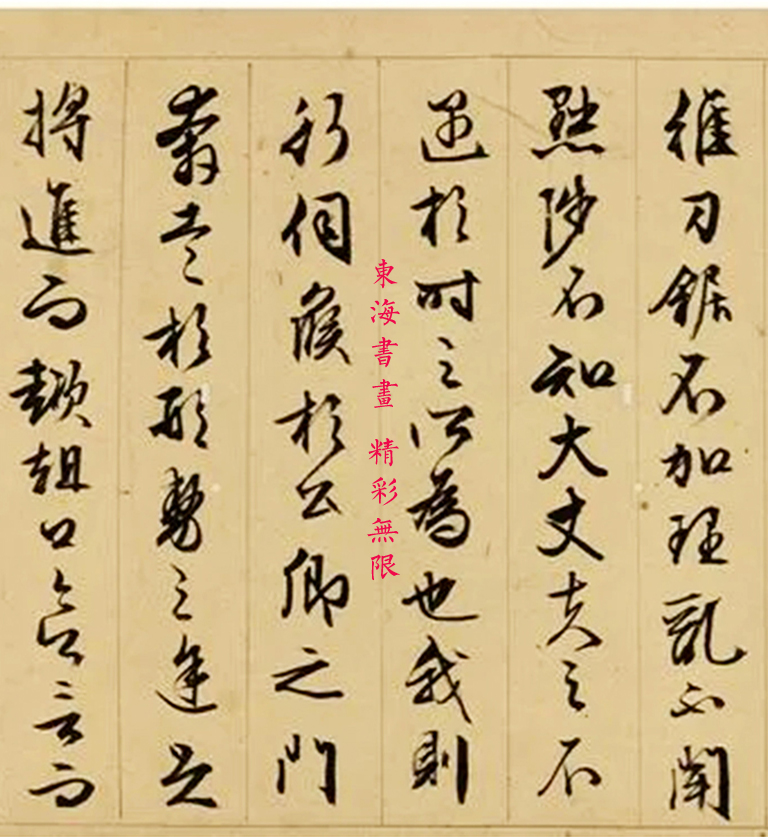 維刀鋸不加理亂不聞
黜陟不知大丈夫之不
遇於時之所為也我則
行伺候於公卿之門
奔走於形勢之途足
將進而趑趄口言而
東海書畫 精彩無限